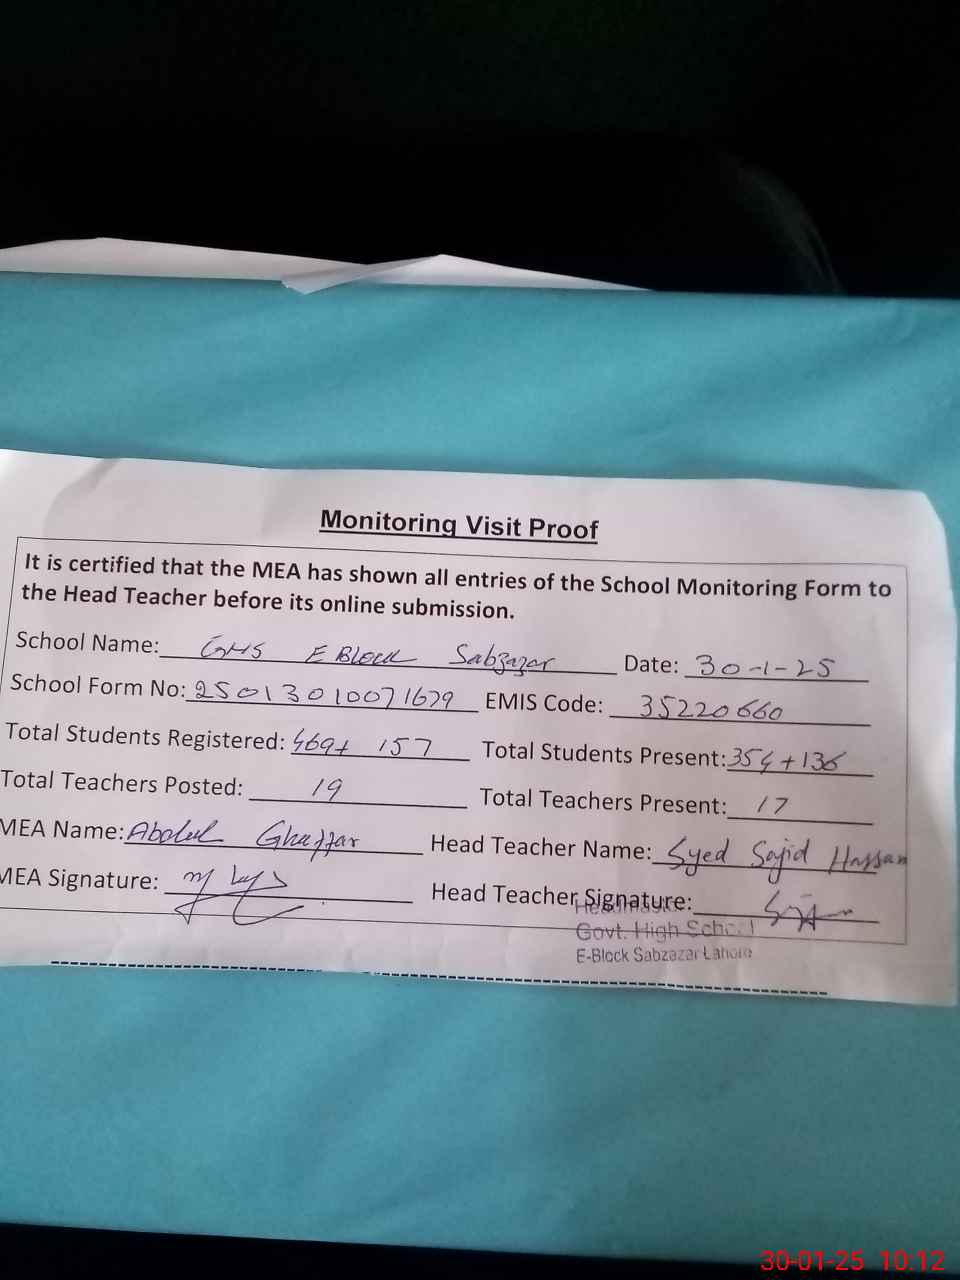 Monitoring Visit Proof
It is certified that the MEA has shown all entries of the School Monitoring Form to
the Head Teacher before its online submission.
School Name: GHS E Block Sabzazar Date: 30-1-25
School Form No: 25013010071679 EMIS Code: 35220660
Total Students Registered: 469+ 157 Total Students Present: 354+136
Total Teachers Posted: 19 Total Teachers Present: 17
MEA Name: Abdul Ghaffar Head Teacher Name: Syed Sajid Hassan
MEA Signature: Head Teacher Signature:
Headmaster
Govt. High School
E-Block Sabzazar Lahore
30-01-25 10:12